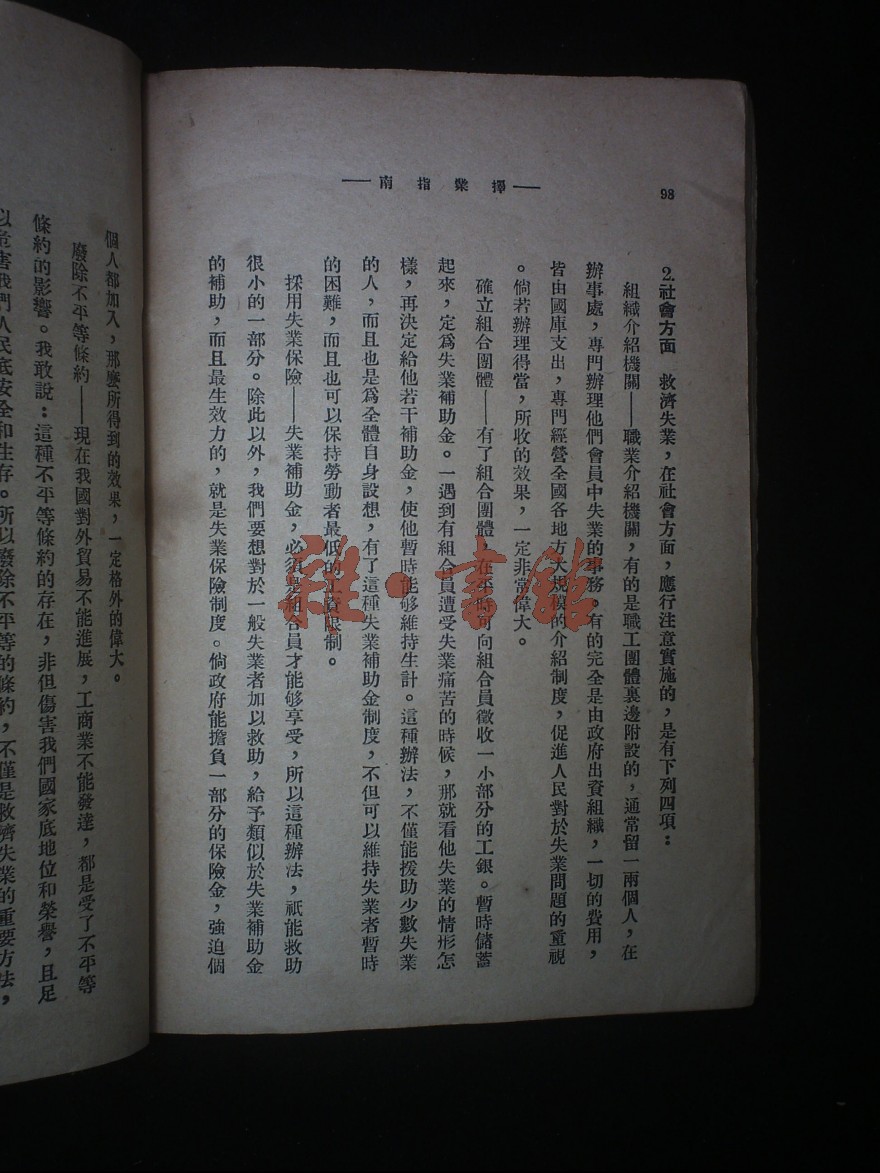 98
——擇業指南——
2.社會方面　救濟失業，在社會方面，應行注意實施的，是有下列四項：
組織介紹機關——職業介紹機關，有的是職工團體裏邊附設的，通常留一兩個人，在
辦事處，專門辦理他們會員中失業的事務。有的完全是由政府出資組織，一切的費用，
皆由國庫支出，專門經營全國各地方大規模的介紹制度，促進人民對於失業問題的重視
。倘若辦理得當，所收的效果，一定非常偉大。
確立組合團體——有了組合團體，在平時可向組合員徵收一小部分的工銀。暫時儲蓄
起來，定爲失業補助金。一遇到有組合員遭受失業痛苦的時候，那就看他失業的情形怎
樣，再決定給他若干補助金，使他暫時能够維持生計。這種辦法，不僅能援助少數失業
的人，而且也是爲全體自身設想，有了這種失業補助金制度，不但可以維持失業者暫時
的困難，而且也可以保持勞動者最低的工資限制。
採用失業保險——失業補助金，必須是組合員才能够享受，所以這種辦法，祇能救助
很小的一部分。除此以外，我們要想對於一般失業者加以救助，給予類似於失業補助金
的補助，而且最生效力的，就是失業保險制度。倘政府能擔負一部分的保險金，強迫個
個人都加入，那麽所得到的效果，一定格外的偉大。
廢除不平等條約——現在我國對外貿易不能進展，工商業不能發達，都是受了不平等
條約的影響。我敢說：這種不平等條約的存在，非但傷害我們國家底地位和榮譽，且足
以危害我們人民底安全和生存。所以廢除不平等的條約，不僅是救濟失業的重要方法，
雜·書館